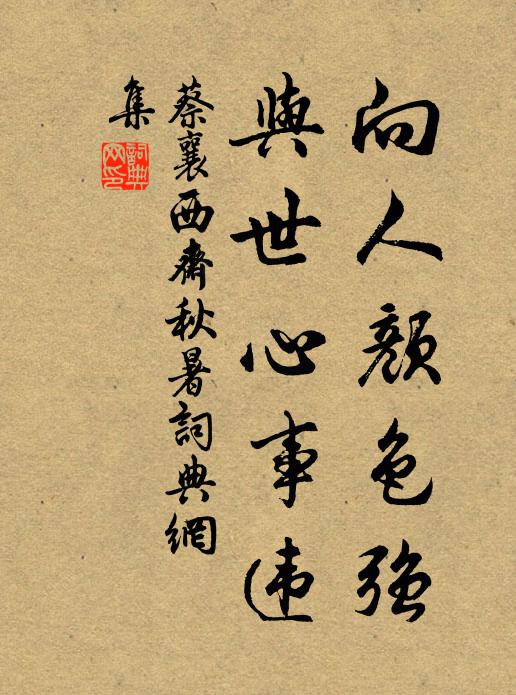 向人顏色強
與世心事違
蔡襄西齋秋暑詞典網
集
詞典
网印